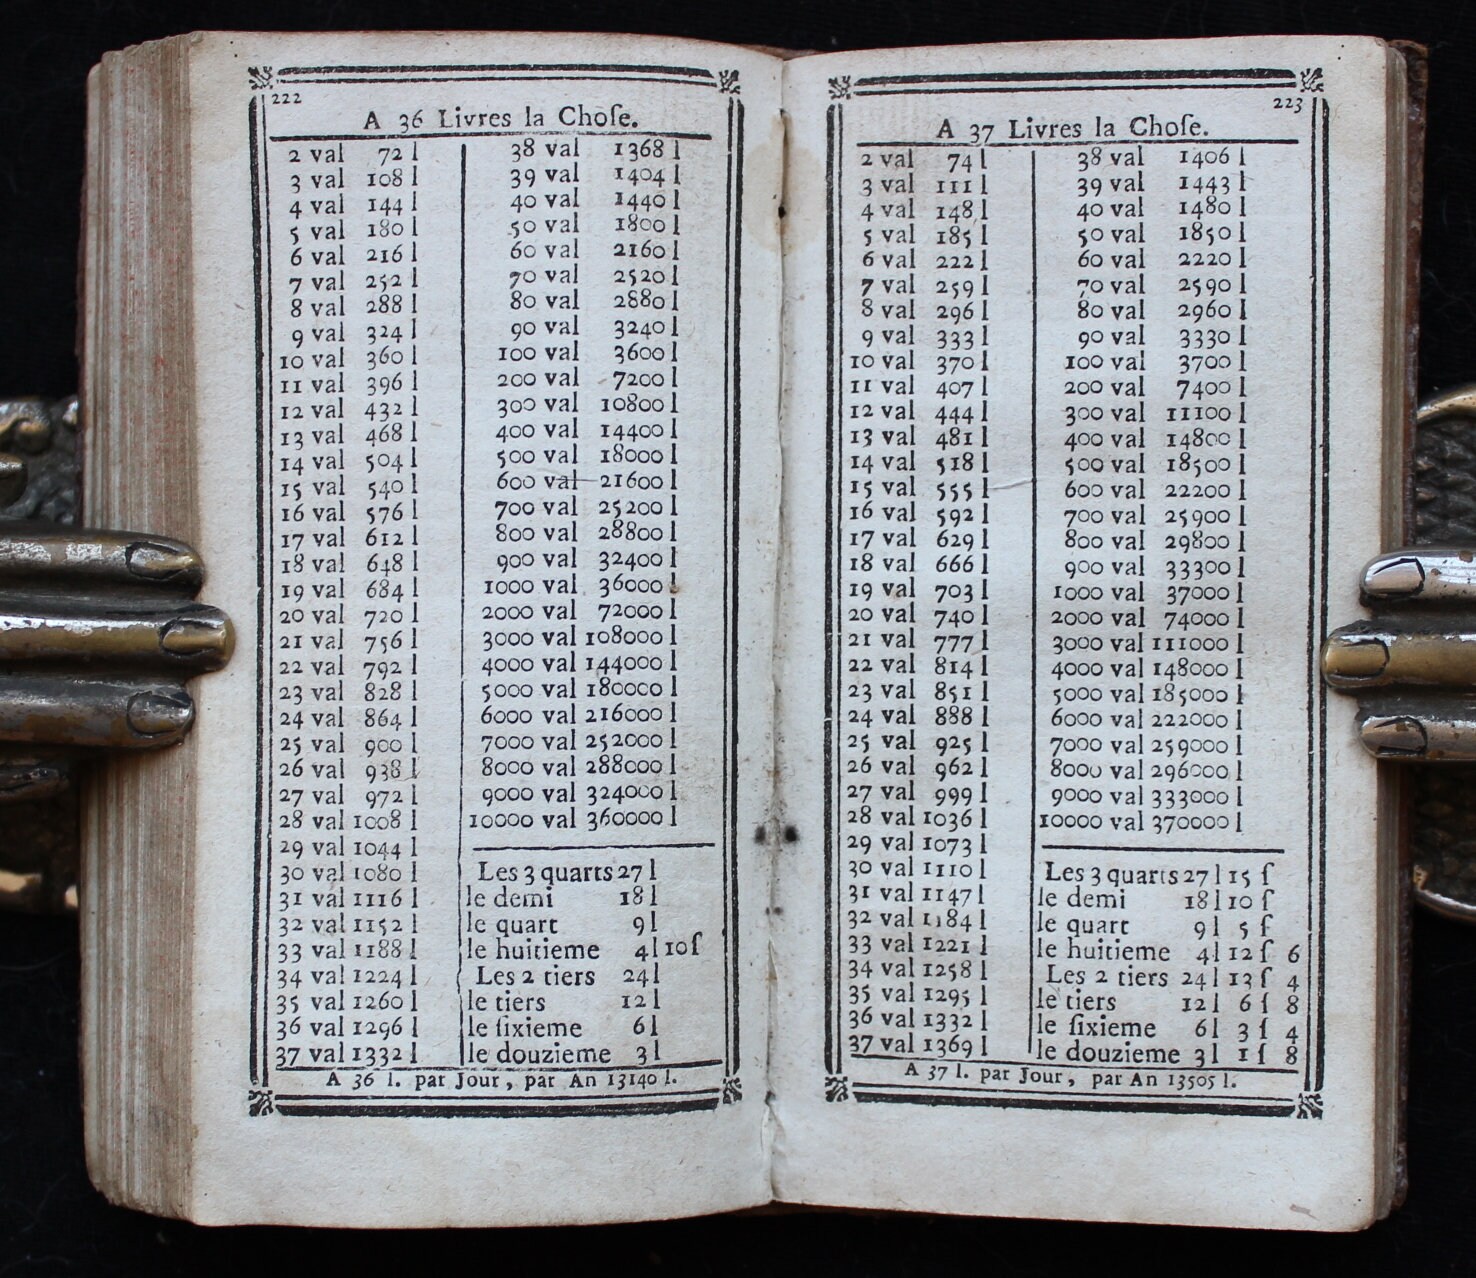 222
A 36 Livres la Choſe.
2 val 72 l
3 val 108 l
4 val 144 l
5 val 180 l
6 val 216 l
7 val 252 l
8 val 288 l
9 val 324 l
10 val 360 l
11 val 396 l
12 val 432 l
13 val 468 l
14 val 504 l
15 val 540 l
16 val 576 l
17 val 612 l
18 val 648 l
19 val 684 l
20 val 720 l
21 val 756 l
22 val 792 l
23 val 828 l
24 val 864 l
25 val 900 l
26 val 938 l
27 val 972 l
28 val 1008 l
29 val 1044 l
30 val 1080 l
31 val 1116 l
32 val 1152 l
33 val 1188 l
34 val 1224 l
35 val 1260 l
36 val 1296 l
37 val 1332 l
38 val 1368 l
39 val 1404 l
40 val 1440 l
50 val 1800 l
60 val 2160 l
70 val 2520 l
80 val 2880 l
90 val 3240 l
100 val 3600 l
200 val 7200 l
300 val 10800 l
400 val 14400 l
500 val 18000 l
600 val 21600 l
700 val 25200 l
800 val 28800 l
900 val 32400 l
1000 val 36000
2000 val 72000 l
3000 val 108000 l
4000 val 144000 l
5000 val 180000 l
6000 val 216000 l
7000 val 252000 l
8000 val 288000 l
9000 val 324000 l
10000 val 360000 l
Les 3 quarts 27 l
le demi 18 l
le quart 9 l
le huitieme 4 l 10 ſ
Les 2 tiers 24 l
le tiers 12 l
le ſixieme 6 l
le douzieme 3 l
A 36 l. par Jour, par An 13140 l.
223
A 37 Livres la Choſe.
2 val 74 l
3 val 111 l
4 val 148 l
5 val 185 l
6 val 222 l
7 val 259 l
8 val 296 l
9 val 333 l
10 val 370 l
11 val 407 l
12 val 444 l
13 val 481 l
14 val 518 l
15 val 555 l
16 val 592 l
17 val 629 l
18 val 666 l
19 val 703 l
20 val 740 l
21 val 777 l
22 val 814 l
23 val 851 l
24 val 888 l
25 val 925 l
26 val 962 l
27 val 999 l
28 val 1036 l
29 val 1073 l
30 val 1110 l
31 val 1147 l
32 val 1184 l
33 val 1221 l
34 val 1258 l
35 val 1295 l
36 val 1332 l
37 val 1369 l
38 val 1406 l
39 val 1443 l
40 val 1480 l
50 val 1850 l
60 val 2220 l
70 val 2590 l
80 val 2960 l
90 val 3330 l
100 val 3700 l
200 val 7400 l
300 val 11100 l
400 val 14800 l
500 val 18500 l
600 val 22200 l
700 val 25900 l
800 val 29800 l
900 val 33300 l
1000 val 37000 l
2000 val 74000 l
3000 val 111000 l
4000 val 148000 l
5000 val 185000 l
6000 val 222000 l
7000 val 259000 l
8000 val 296000 l
9000 val 333000 l
10000 val 370000 l
Les 3 quarts 27 l 15 ſ
le demi 18 l 10 ſ
le quart 9 l 5 ſ
le huitieme 4 l 12 ſ 6
Les 2 tiers 24 l 13 ſ 4
le tiers 12 l 6 ſ 8
le ſixieme 6 l 3 ſ 4
le douzieme 3 l 1 ſ 8
A 37 l. par Jour, par An 13505 l.